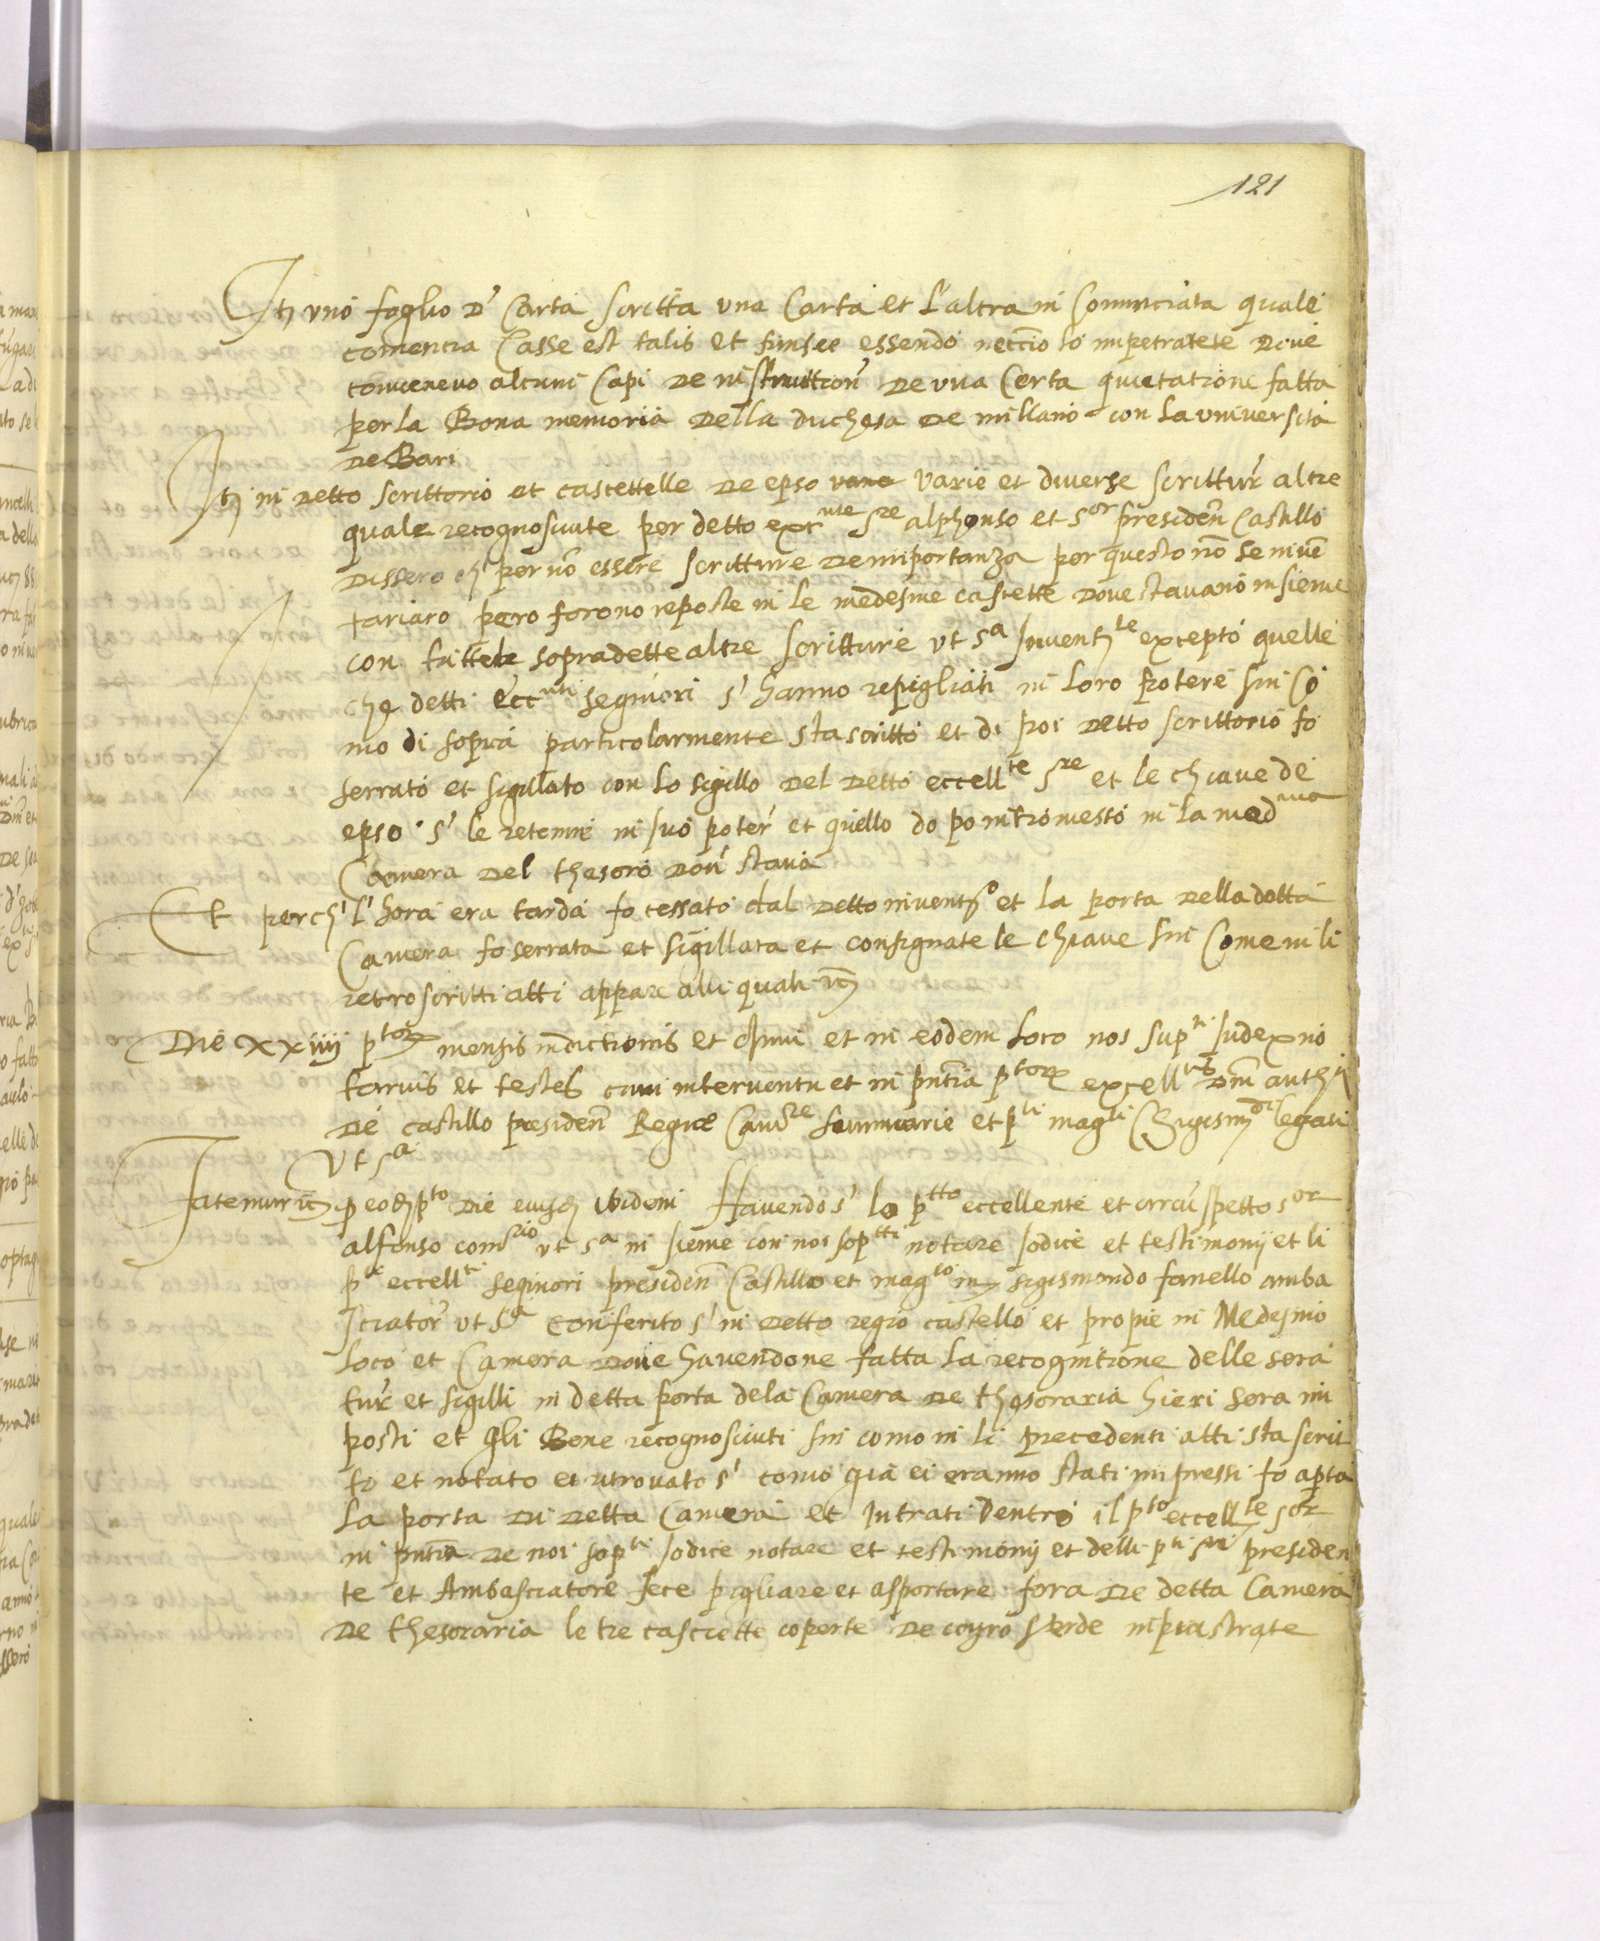 121
It̃ uno foglio d' Carta scritta una Carta et l'altra in Comenciata quale
comencia Casse est talis et finisce essendo necc̃io lo impetratete dove
convenevo alcuni Capi de instruttion̄ de una Certa quietatione fatta
per la Bona memoria della duchesa de millano con la università
De Bari
It̃ in detto scrittorio et cascettelle de epso varie et diverse scrittur' altre
quale recognosciute per detto ex.nte S.re alphonso et s.or presiden̄ Castillo
dissero ch' per nō essere scritture de importanza per questo nō se inven̄
tariaro pero forono reposte in le medesme cascette dove stavano insieme
con tutte le sopradette altre scritture ut s.a Invent.te excepto quelle
che detti ecc.nti segniori s' hanno repigliati in loro potere sin Co
mo di sopra particolarmente sta scritto et di poi detto scrittorio fo
serrato et sigillato con lo sigillo del detto eccell.te S.re et le chiave de
epso s' le retenne in suo poter' et quello do po intromesso in la med.ma
Camera del thesoro dov' stava
Et perch' l'hora era tarda fo cessato dal detto invent.o et la porta della dotta
Camera fo serrata et sigillata et consignate le chiave sin Come in li
retroscritti atti appare alli quali
Die xxiiij p.torum mensis indictionis et Anni et in eodem loco nos sup.ti Judex no
tarius et testes cum interventu et in pn̄tia p.torum excell.tis Dn̄i anth.i
de castillo presiden̄ Regiæ Cam.re summarie et p.ti mag.ci Sigism.di legati
Ut s.a
Fatemur p eod p.to die eiusd ibidem Havendo s' lo p.tto eccellente et circu' spetto s.or
alfonso com.rio ut s.a in sieme con noi sop.tti notare Jodice et testimonij et li
p.ti eccell.ti segniori presiden̄ Castillo et mag.co sigismondo fanello amba
sciator' ut s.a Conferito s' in detto regio castello et propie in Medesmo
loco et Camera dove havendone fatta la recognitione delle sera
tur' et sigilli in detta porta dela Camera de thesoraria hieri sera im
posti et qlli Bene recognosciuti sin como in li precedenti atti sta scrit
to et notato et ritrovato s' como gia ei eranno stati impressi fo apta
la porta di detta Camera et Intrati dentro il p.to eccell.te s.or
in pn̄tia de noi sop.ti Jodice notare et testimonij et delli p.ti s.ri presiden
te et Ambasciatore fece pigliare et asportare fora de detta Camera
de thesoraria le tre casciette coperte de coyro Verde inpiastrate